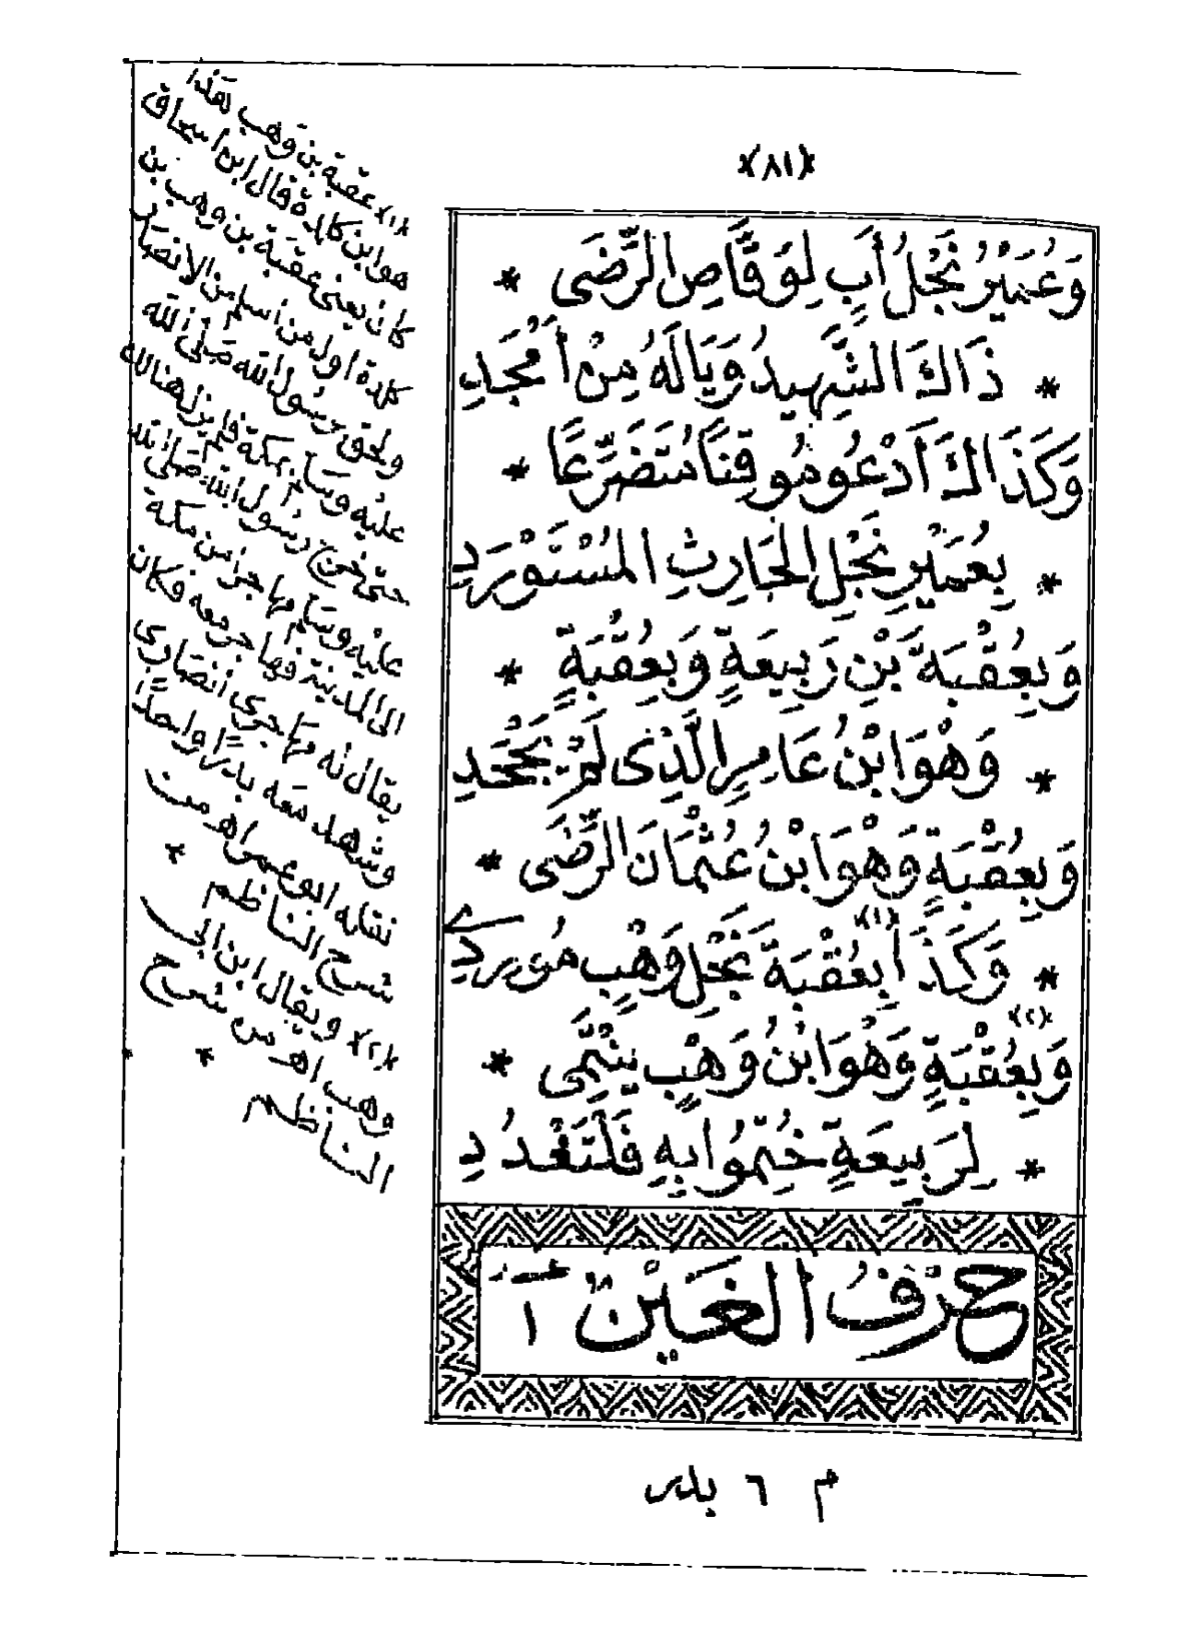 ﴿٨١﴾
وَعُمَيْرُ نَجْلُ أَبٍ لِوَقَّاصِ الرِّضَى *
* ذَاكَ الشَّهِيدُ وَيَالَهُ مِنْ أَمْجَدِ
وَكَذَاكَ أَدْعُو مُوقِنًا مُتَضَرِّعًا *
* بِعُمَيْرِ نَجْلِ الحَارِثِ المُسْتَوْرَدِ
وَبِعُقْبَةَ بْنِ رَبِيعَةٍ وَبِعُقْبَةٍ *
* وَهْوَ ابْنُ عَامِرِ الَّذِى لَمْ يَجْحَدِ
وَبِعُقْبَةٍ وَهْوَ ابْنُ عُثْمَانَ الرِّضَى *
* وَكَذَا بِعُقْبَةَ (١) نَجْلِ وَهْبٍ مُورَدِي
وَبِعُقْبَةٍ (٢) وَهُوَ ابْنُ وَهْبٍ يَنْتَمِى *
* لِرَبِيعَةٍ خُتِمُوا بِهِ فَلْتَعْدُدِ
حَرْفُ الغَيْنِ ١
م ٦ بدر
(١) عقبة بن وهب هذا
هو ابن كلدة قال ابن اسحاق
كان يعنى عقبة بن وهب بن
كلدة اول من اسلم من الانصار
ولحق رسول الله صَلى الله
عليه وسلم بمكة فلم يزل هنالك
حتى خرج رسول الله صَلى الله
عليه وسلم مهاجرا من مكة
الى المدينة فهاجر معه فكان
يقال له مهاجرى انصارى
وشهد معه بدرًا واحدًا
نقله ابو عمر اهـ من
شرح الناظم *
(٢) ويقال ابن ابى
وهب اهـ من شرح
الناظم * *